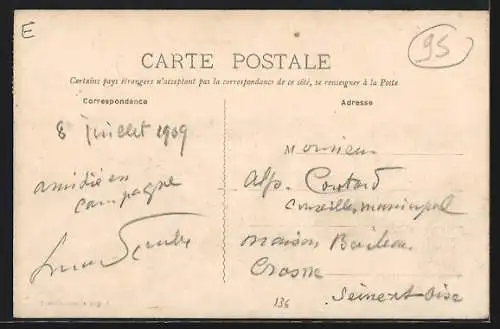 E
95
CARTE POSTALE
Certains pays étrangers n'acceptant pas la correspondance de ce côté, se renseigner à la Poste
Correspondance
Adresse
8 juillet 1909
campagne
Monsieur
Alp. Coutard
Conseiller municipal
maison Boileau
Crosne
Seine et Oise
136